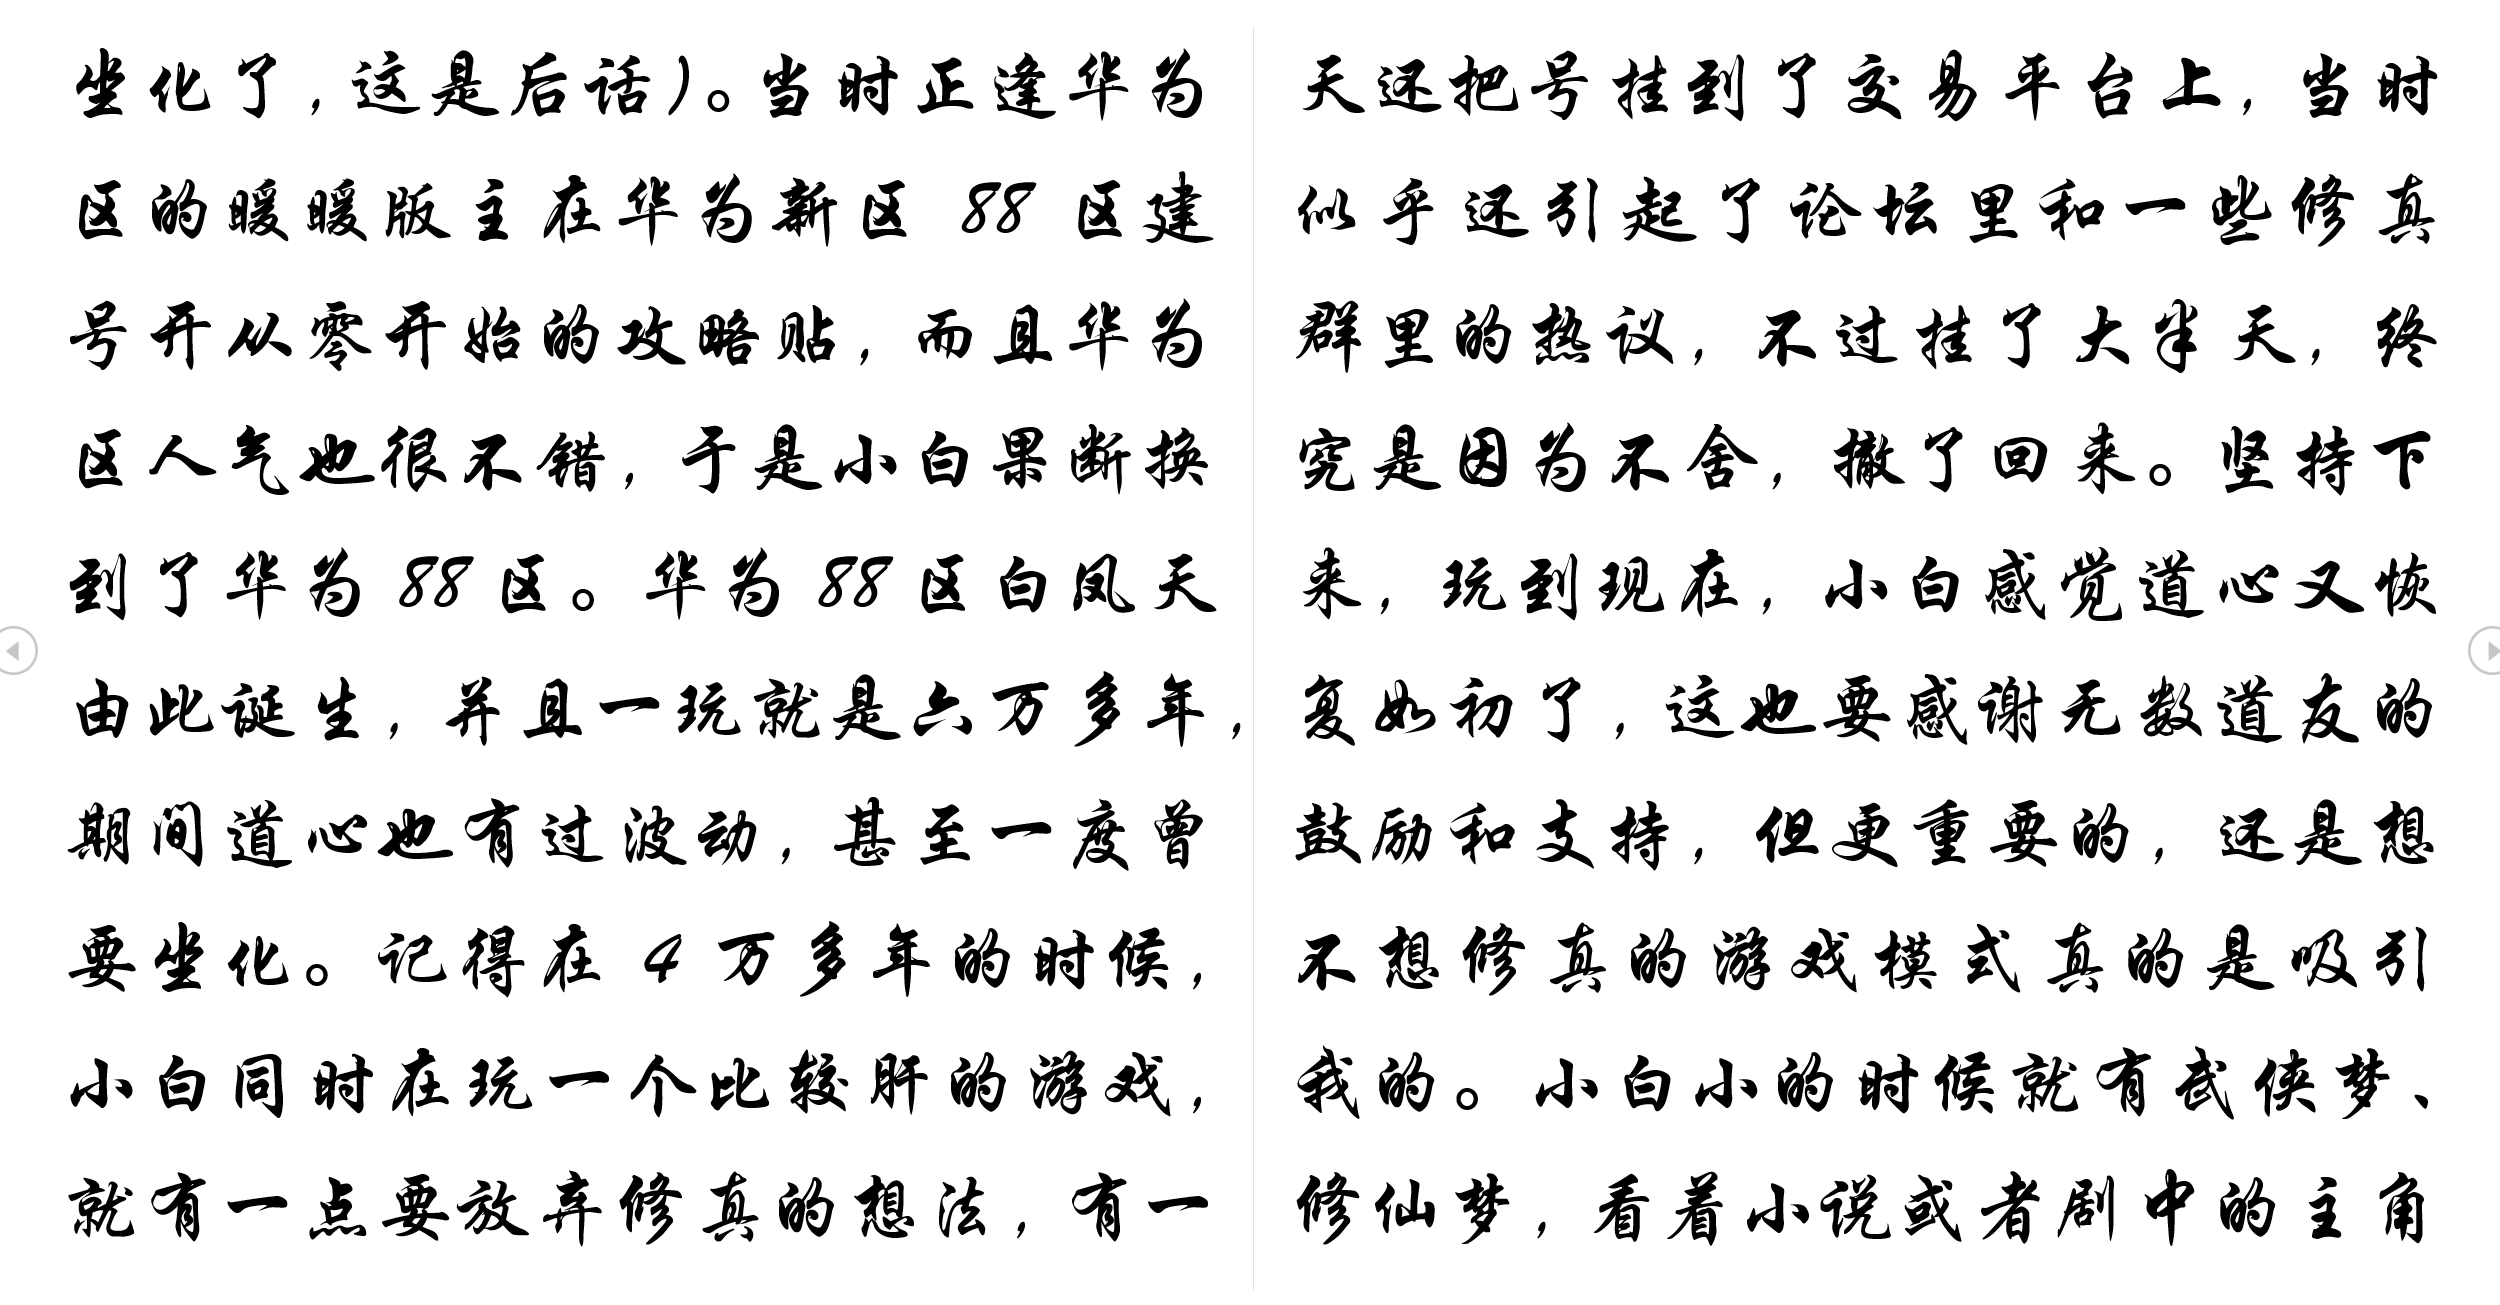 坐化了,这是后话)。当时正逢华为
区的暖暖服主在华为新区88区建
号开从零开始的攻略贴,而且华为
区人气也很不错,于是小白果断投
到了华为88区。华为88区白帆天
由此诞生,并且一玩就是六万多年,
期间道心也有过波动,甚至一度曾
要坐化。记得在4万多年的时候,
小白同时在玩一个比较肝的游戏,
就有一点要放弃修真的想法,有一
天还把号挂到了交易平台上,当时
似乎还引起了论坛里和一些修真
群里的热议,不过挂了大半天,终
究是因为不舍,撤了回来。坚持下
来,玩到现在,小白感觉道心又恢
复如初了,这也要感谢无数道友的
鼓励和支持,但更重要的,还是想
不想修真的游戏模式真的是吸引
我的。小白小的时候就有武侠梦、
修仙梦,看着小说或者剧中的主角